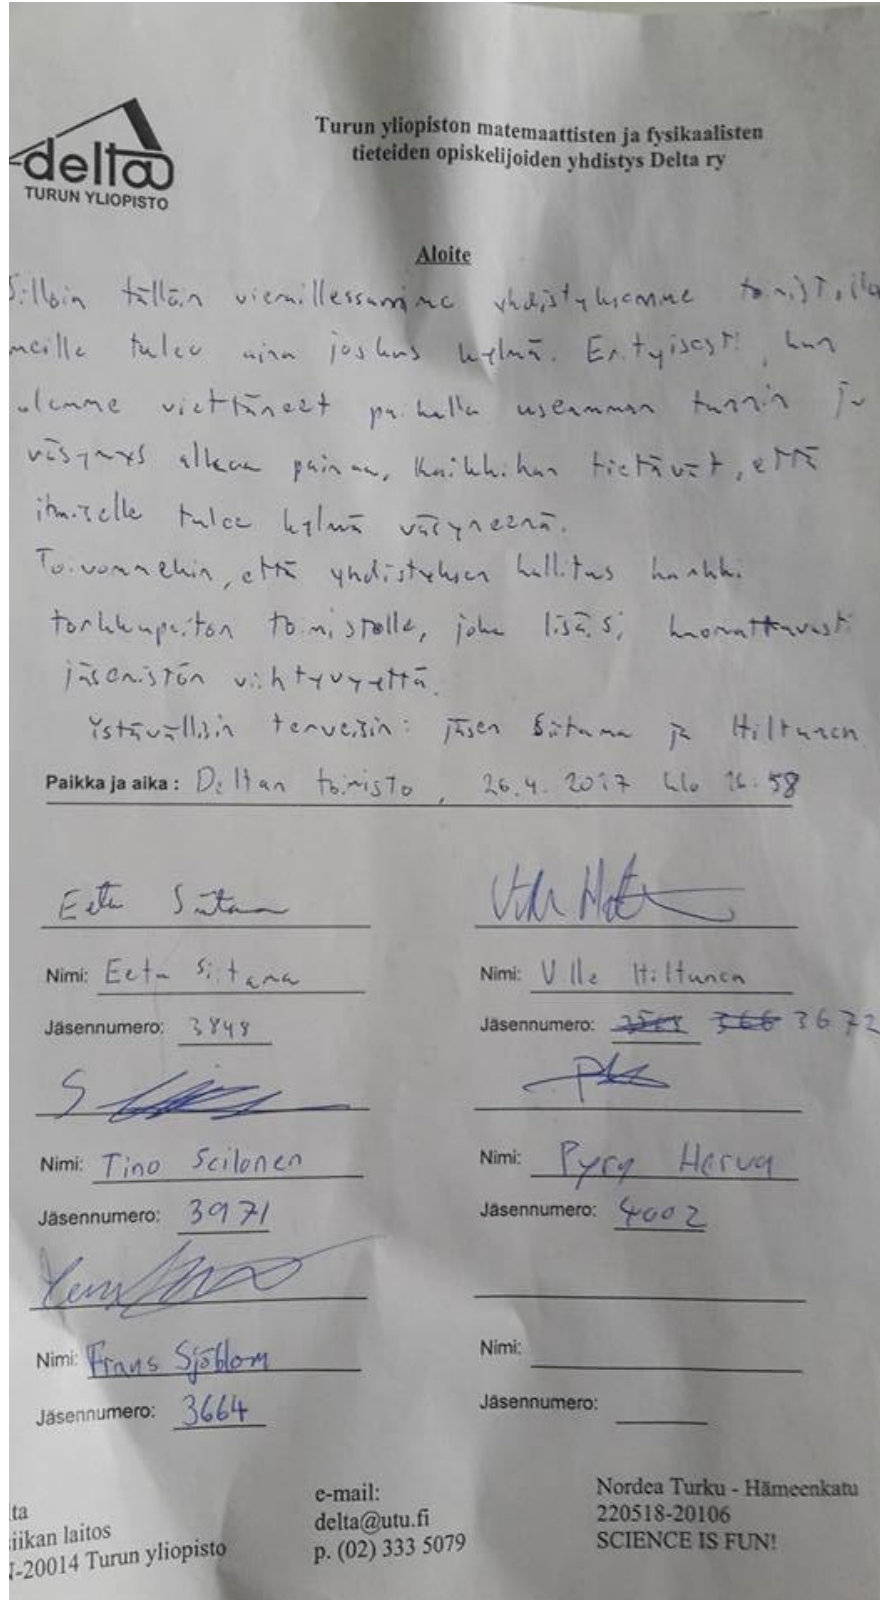 delta
TURUN YLIOPISTO
Turun yliopiston matemaattisten ja fysikaalisten
tieteiden opiskelijoiden yhdistys Delta ry
Aloite
Silloin tällöin vieraillessamme yhdistyksemme toimistolla
meille tulee aina joskus kylmä. Erityisesti, kun
olemme viettäneet paikalla useamman tunnin ja
väsymys alkaa painaa, kaikkihan tietävät, että
ihmiselle tulee kylmä väsyneenä.
Toivommekin, että yhdistyksen hallitus hankkii
torkkupeiton toimistolle, joka lisäisi huomattavasti
jäsenistön viihtyvyyttä.
Ystävällisin terveisin: jäsen Siitama ja Hiltunen
Paikka ja aika: Deltan toimisto, 26.4.2017 klo 16:58
Eetu Siitama
Nimi: Eetu Siitama
Nimi: Ville Hiltunen
Jäsennumero: 3848
Jäsennumero: 3672
Nimi: Tino Seilonen
Nimi: Pyry Herva
Jäsennumero: 3971
Jäsennumero: 4002
Nimi: Frans Sjöblom
Nimi:
Jäsennumero: 3664
Jäsennumero:
ta
iikan laitos
-20014 Turun yliopisto
e-mail:
delta@utu.fi
p. (02) 333 5079
Nordea Turku - Hämeenkatu
220518-20106
SCIENCE IS FUN!